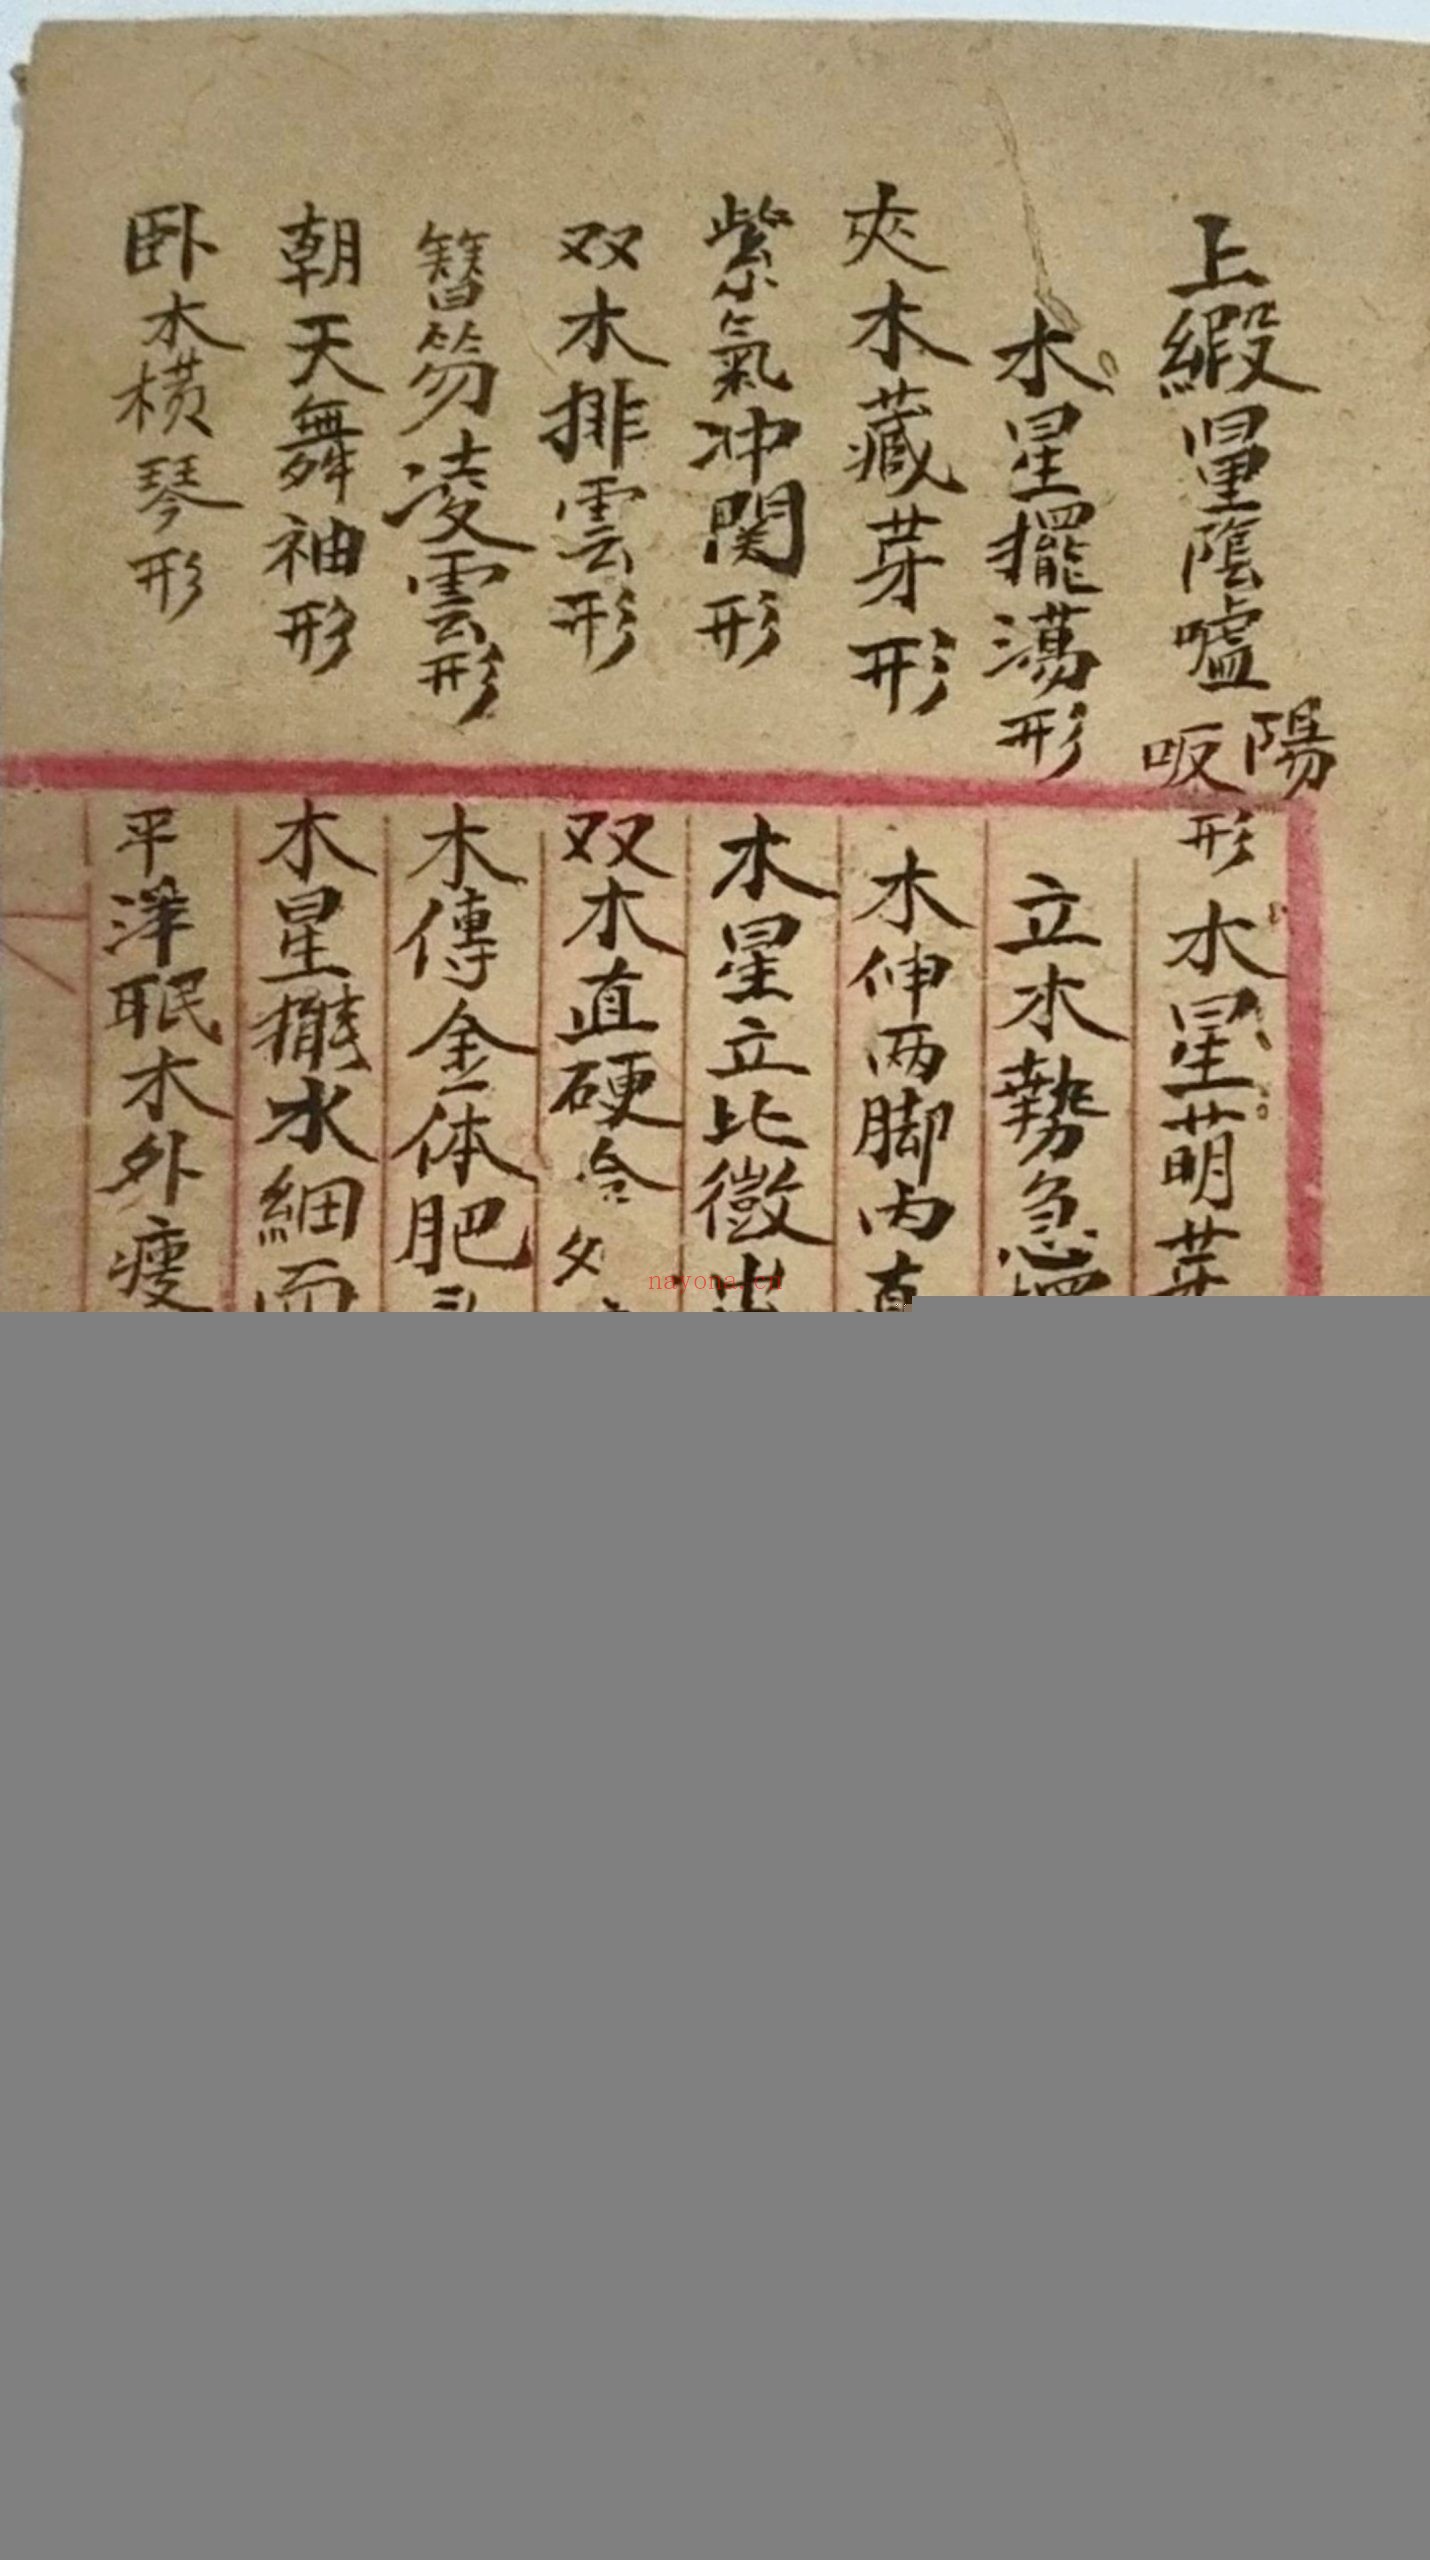 上緞星蔭嘘陽吸形
木星擺蕩形
夾木藏芽形
紫氣冲関形
双木排雲形
簪笏凌雲形
朝天舞袖形
卧木横琴形
木星萌芽
立木勢急擺
木伸兩脚內直
木星立比徵出
双木直硬合
木傳金体肥
木星撇水細而
平洋眠木外瘦
nayona.cn